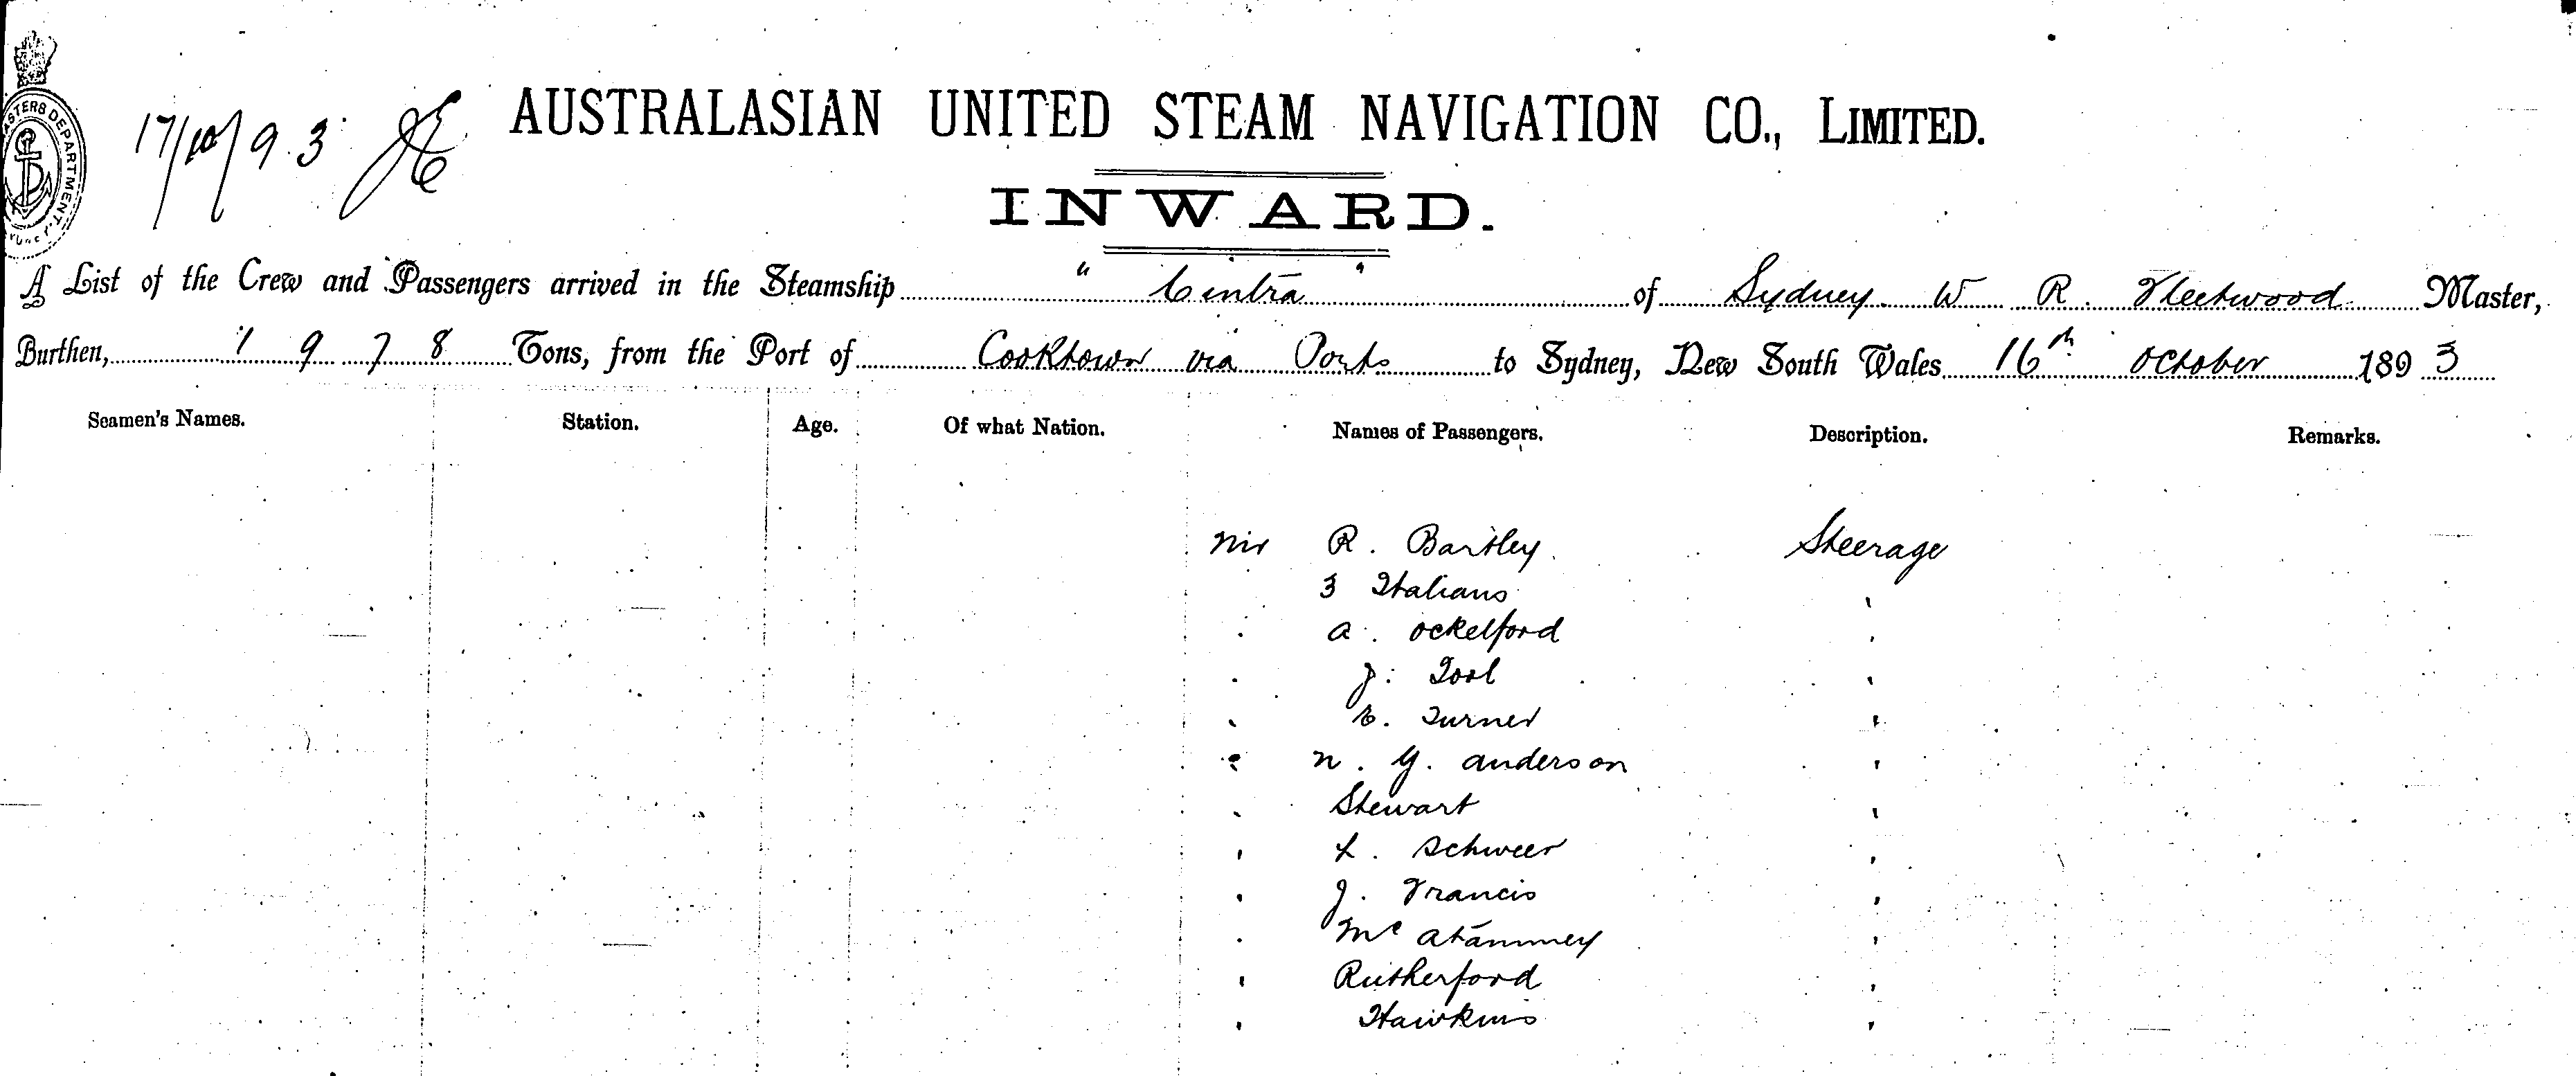 17/10/93
AUSTRALASIAN UNITED STEAM NAVIGATION CO., LIMITED.
INWARD.
A List of the Crew and Passengers arrived in the Steamship "Cintra" of Sydney. W R. Fleetwood Master,
Burthen, 1978 Tons, from the Port of Cooktown via Ports to Sydney, New South Wales 16th October 1893
Seamen's Names. Station. Age. Of what Nation. Names of Passengers. Description. Remarks.
Mr R. Bartley. Steerage
3 Italians "
" A. Ockelford "
" J. Tool "
" C. Turner "
" N. G. Anderson "
" Stewart "
" L. Schweer "
" J. Francis "
" Mc "
" Rutherford "
" Hawkins "